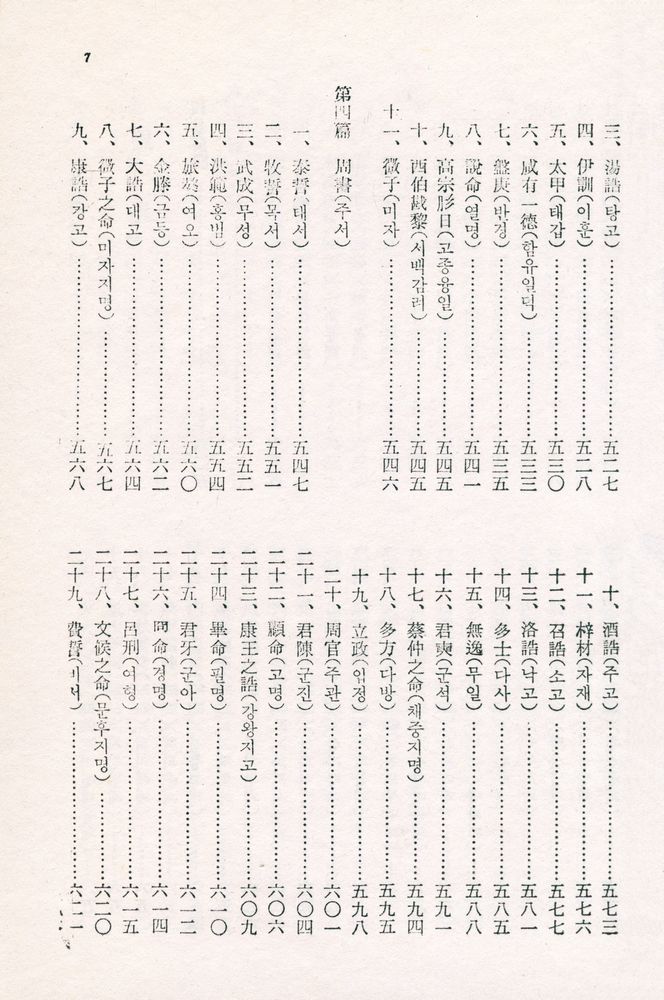 7
三、湯誥(탕고)……五二七
四、伊訓(이훈)……五二八
五、太甲(태갑)……五三〇
六、咸有一德(함유일덕)……五三三
七、盤庚(반경)……五三五
八、說命(열명)……五四一
九、高宗肜日(고종융일)……五四五
十、西伯戡黎(서백감려)……五四五
十一、微子(미자)……五四六
第四篇 周書(주서)
一、泰誓(태서)……五四七
二、牧誓(목서)……五五一
三、武成(무성)……五五二
四、洪範(홍범)……五五四
五、旅獒(여오)……五六〇
六、金滕(금등)……五六二
七、大誥(대고)……五六四
八、微子之命(미자지명)……五六七
九、康誥(강고)……五六八
十、酒誥(주고)……五七三
十一、梓材(자재)……五七六
十二、召誥(소고)……五七七
十三、洛誥(낙고)……五八一
十四、多士(다사)……五八五
十五、無逸(무일)……五八八
十六、君奭(군석)……五九一
十七、蔡仲之命(채중지명)……五九四
十八、多方(다방)……五九五
十九、立政(입정)……五九八
二十、周官(주관)……六〇一
二十一、君陳(군진)……六〇四
二十二、顧命(고명)……六〇六
二十三、康王之誥(강왕지고)……六〇九
二十四、畢命(필명)……六一〇
二十五、君牙(군아)……六一二
二十六、冏命(경명)……六一四
二十七、呂刑(여형)……六一五
二十八、文候之命(문후지명)……六二〇
二十九、費誓(비서)……六二一